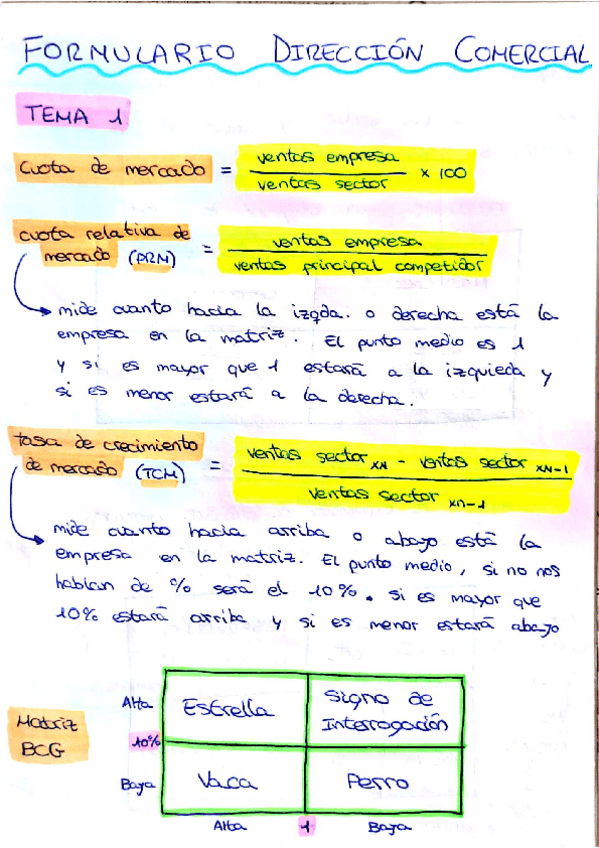 FORMULARIO DIRECCIÓN COMERCIAL
TEMA 1
cuota de mercado = ventas empresa / ventas sector x 100
cuota relativa de
mercado (PRM) = ventas empresa / ventas principal competidor
mide cuanto hacia la izqda. o derecha está la
empresa en la matriz. El punto medio es 1
y si es mayor que 1 estará a la izquieda y
si es menor estará a la derecha.
tasa de crecimiento
de mercado (TCM) = ventas sector xN - ventas sector xN-1 / ventas sector xn-1
mide cuanto hacia arriba o abajo está la
empresa en la matriz. El punto medio, si no nos
hablan de % será el 10%. si es mayor que
10% estará arriba y si es menor estará abajo
Matriz
BCG
Alta
Estrella
Signo de
Interrogación
10%
Baja
Vaca
Perro
Alta 1 Baja